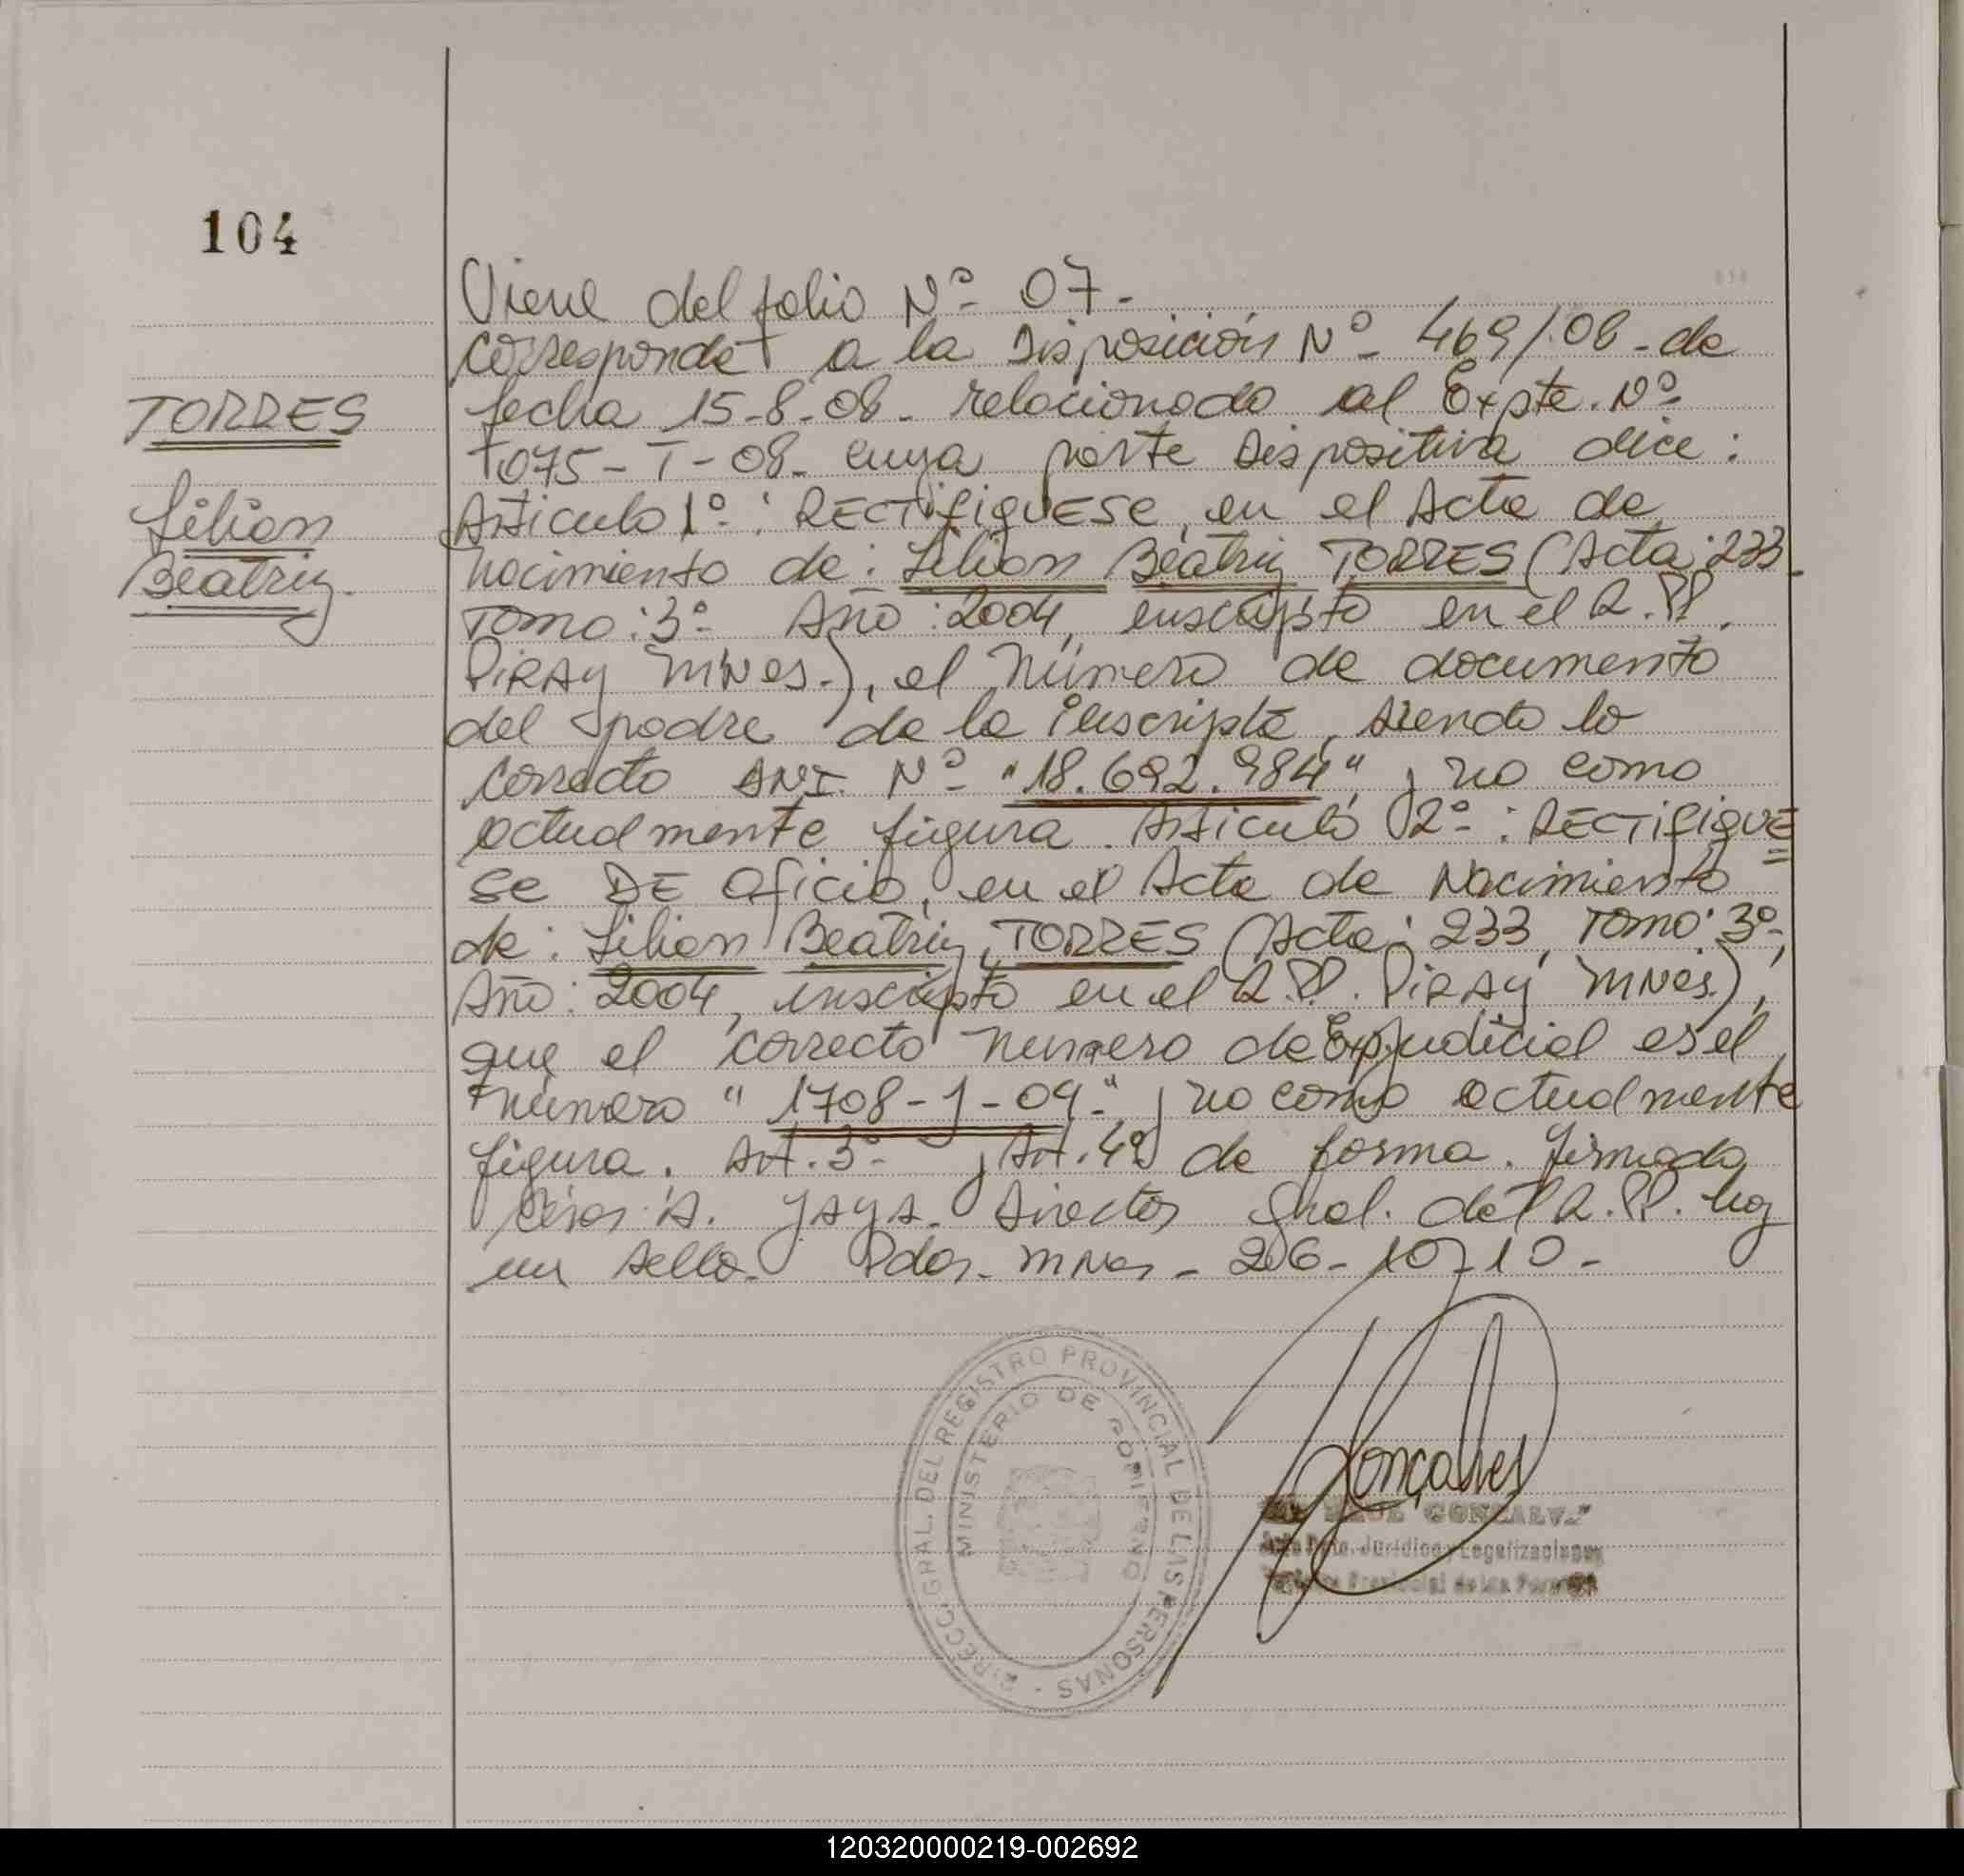 104
Viene del folio Nº 07.-
Corresponde a la Disposición Nº 469/08 - de
TORRES
fecha 15-8-08- relacionado al Expte. Nº
1075-T-08- cuya parte Dispositiva dice:
Lilian
Articulo 1º: RECTIFIQUESE, en el Acta de
Beatriz.
nacimiento de: Lilian Beatriz TORRES (Acta: 233
Tomo: 3º Año: 2004, inscripto en el R.PP.
PiRAy MNes.), el Número de documento
del padre de la inscripta, siendo lo
correcto DNI. Nº "18.692.984" y no como
actualmente figura. Articulo 2º: RECTIFIQUE=
se DE Oficio, en el Acta de Nacimiento
de: Lilian Beatriz TORRES (Acta: 233, Tomo: 3º,
Año: 2004, inscripto en el R.PP. PiRAy MNes.),
que el correcto número de Exp. judicial es el
número "1708-J-04-" y no como actualmente
figura. Art. 3º y Art. 4º de forma. Firmado
César A. JAYA. Director Gral. del R.PP. hay
un sello. Pdas. MNes - 26-10-10-
DIRECC. GRAL. DEL REGISTRO PROVINCIAL DE LAS PERSONAS -
MINISTERIO DE GOBIERNO
Gonçalves
GONZALVES
Dpto. Juridico y Legalizaciones
Provincial de las Personas
120320000219-002692